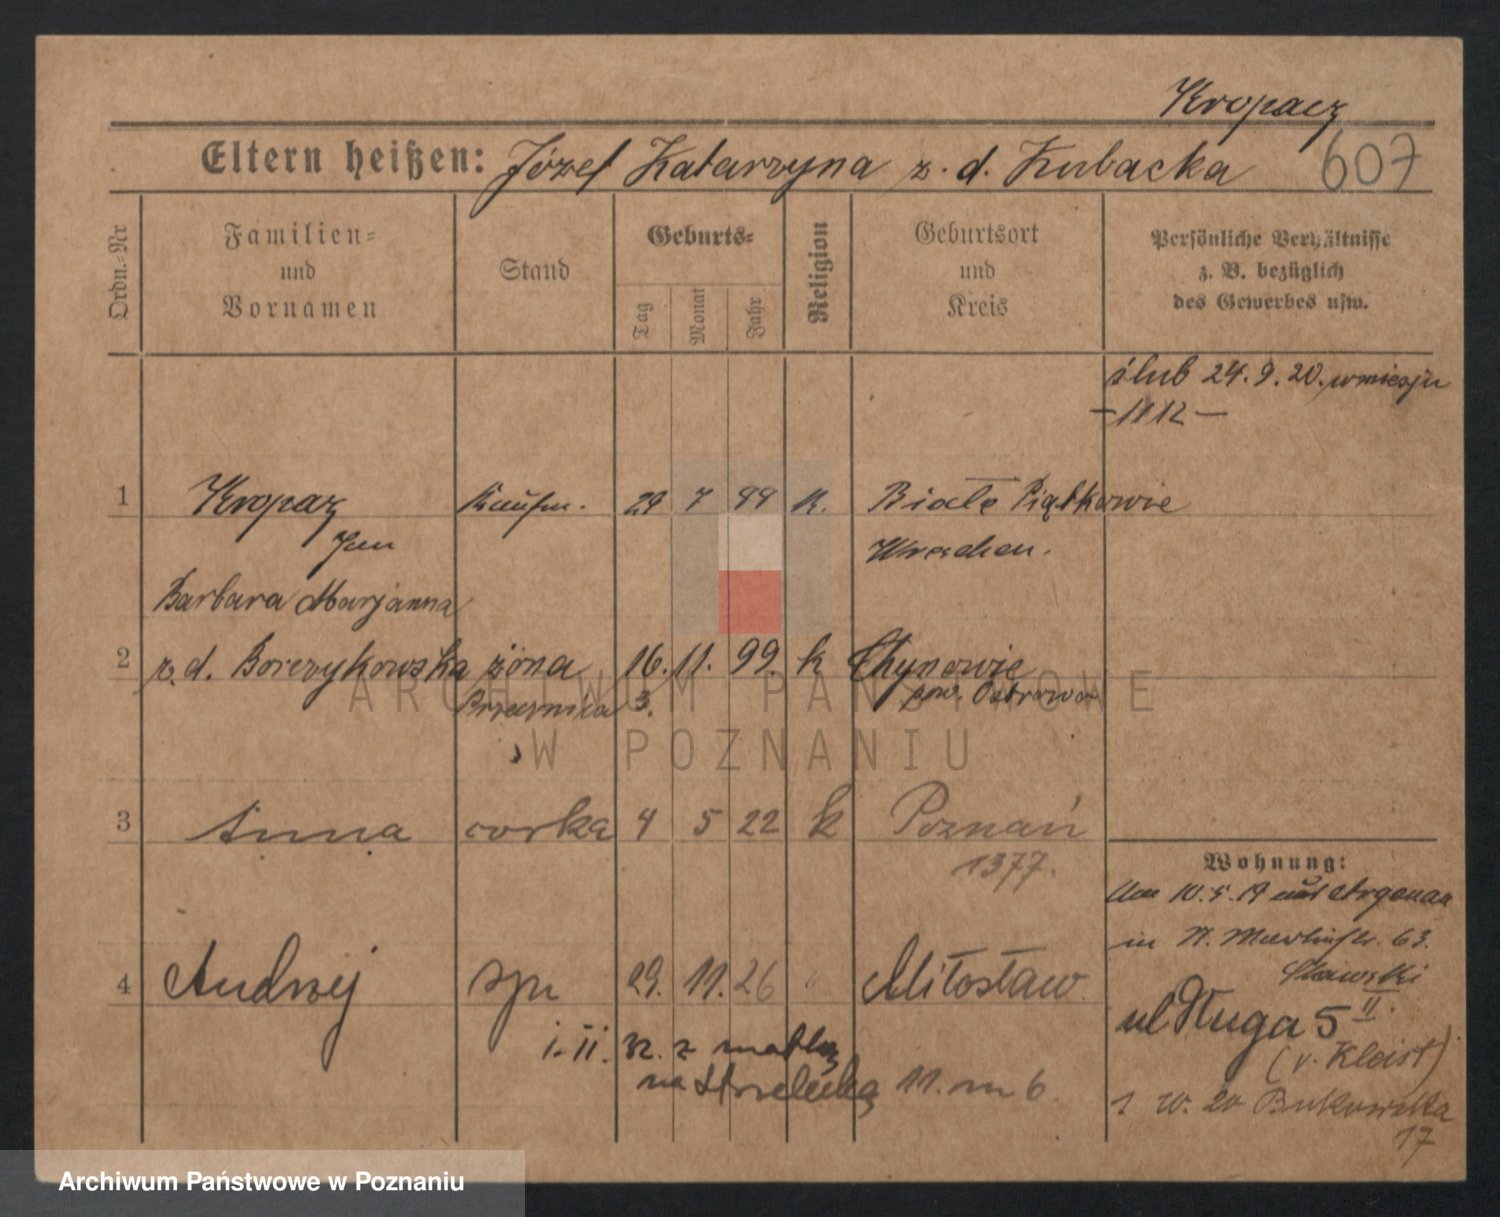 Kropacz
Eltern heißen: Józef Katarzyna z. d. Kubacka 607
Ordn.=Nr
Familien=
und
Vornamen
Stand
Geburts=
Tag
Monat
Jahr
Religion
Geburtsort
und
Kreis
Persönliche Verhältnisse
z. B. bezüglich
des Gewerbes usw.
ślub 24. 9. 20. w miejscu
— 1112 —
1 Kropaz Kaufm. 29 7 88 k. Białe Piątkowie
Jan Wreschen.
Barbara Marjanna
2 z. d. Borczykowska żona 16. 11. 99. k Chynowie
3. pow. Ostrowo
3 Anna corka 4 5 22 k Poznań
1377.
Wohnung:
10. 5. 19 aus Argenau
in St. Martinstr. 63.
Sławski
4 Andrzej syn 29. 11. 26 " Miłosław.
ul Długa 5 II.
1. II. 32. z matką
(v. Kleist)
na Strzelecką 11. m 6.
1 10. 20 Bukowska
17
ARCHIWUM PAŃSTWOWE
W POZNANIU
Archiwum Państwowe w Poznaniu